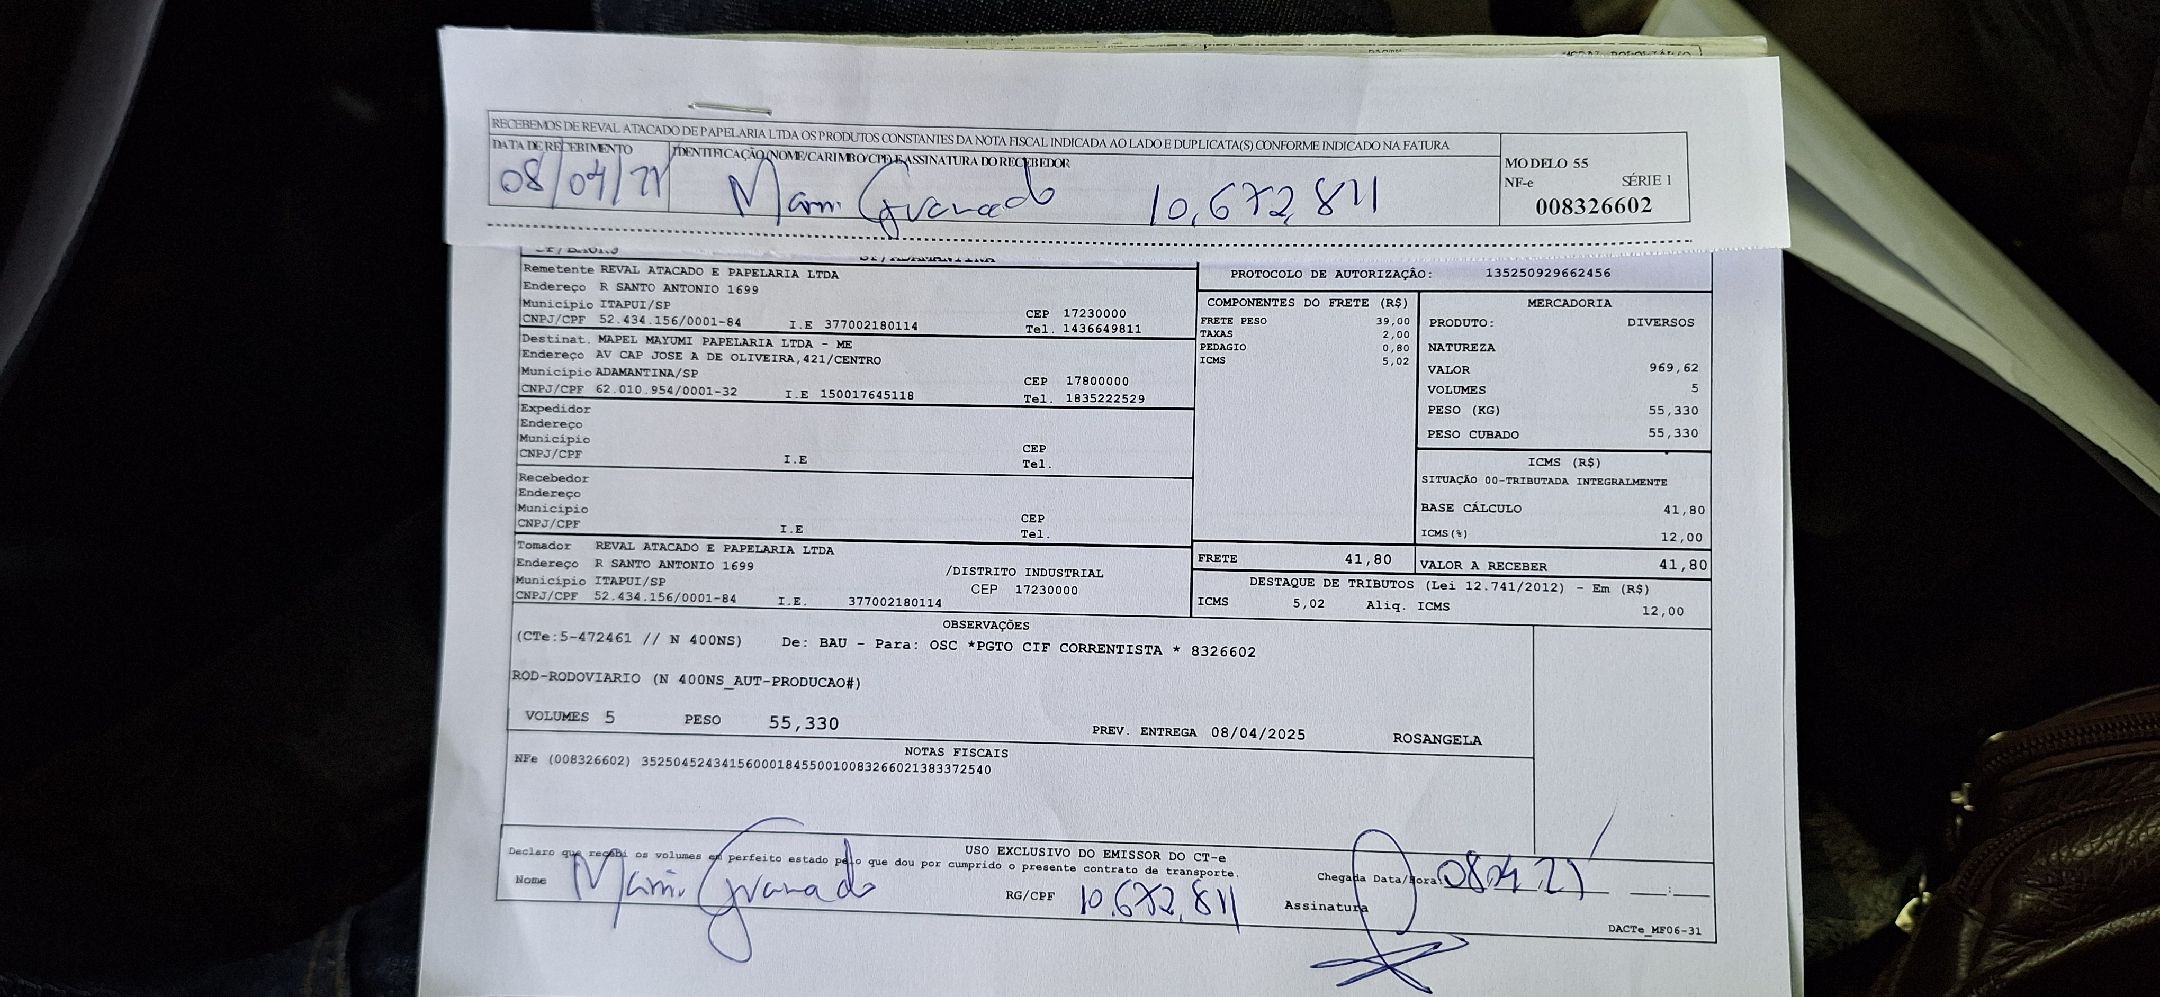 RECEBEMOS DE REVAL ATACADO DE PAPELARIA LTDA OS PRODUTOS CONSTANTES DA NOTA FISCAL INDICADA AO LADO E DUPLICATA(S) CONFORME INDICADO NA FATURA
DATA DE RECEBIMENTO IDENTIFICAÇÃO (NOME/CARIMBO/CPF) E ASSINATURA DO RECEBEDOR
08/04/ Granado 10,672,811
MODELO 55
NF-e SÉRIE 1
008326602
Remetente REVAL ATACADO E PAPELARIA LTDA
Endereço R SANTO ANTONIO 1699
Município ITAPUI/SP CEP 17230000
CNPJ/CPF 52.434.156/0001-84 I.E 377002180114 Tel. 1436649811
Destinat. MAPEL MAYUMI PAPELARIA LTDA - ME
Endereço AV CAP JOSE A DE OLIVEIRA,421/CENTRO
Município ADAMANTINA/SP CEP 17800000
CNPJ/CPF 62.010.954/0001-32 I.E 150017645118 Tel. 1835222529
Expedidor
Endereço
Município CEP
CNPJ/CPF I.E Tel.
Recebedor
Endereço
Município CEP
CNPJ/CPF I.E Tel.
Tomador REVAL ATACADO E PAPELARIA LTDA
Endereço R SANTO ANTONIO 1699 /DISTRITO INDUSTRIAL
Município ITAPUI/SP CEP 17230000
CNPJ/CPF 52.434.156/0001-84 I.E. 377002180114
PROTOCOLO DE AUTORIZAÇÃO: 135250929662456
COMPONENTES DO FRETE (R$)
FRETE PESO 39,00
TAXAS 2,00
PEDAGIO 0,80
ICMS 5,02
MERCADORIA
PRODUTO: DIVERSOS
NATUREZA
VALOR 969,62
VOLUMES 5
PESO (KG) 55,330
PESO CUBADO 55,330
ICMS (R$)
SITUAÇÃO 00-TRIBUTADA INTEGRALMENTE
BASE CÁLCULO 41,80
ICMS(%) 12,00
FRETE 41,80 VALOR A RECEBER 41,80
DESTAQUE DE TRIBUTOS (Lei 12.741/2012) - Em (R$)
ICMS 5,02 Aliq. ICMS 12,00
OBSERVAÇÕES
(CTe:5-472461 // N 400NS) De: BAU - Para: OSC *PGTO CIF CORRENTISTA * 8326602
ROD-RODOVIARIO (N 400NS_AUT-PRODUCAO#)
VOLUMES 5 PESO 55,330 PREV. ENTREGA 08/04/2025 ROSANGELA
NOTAS FISCAIS
NFe (008326602) 35250452434156000184550010083266021383372540
USO EXCLUSIVO DO EMISSOR DO CT-e
Declaro que recebi os volumes em perfeito estado pelo que dou por cumprido o presente contrato de transporte.
Nome Granado RG/CPF 10,672,811 Chegada Data/Hora: __:__
Assinatura
DACTe_MF06-31